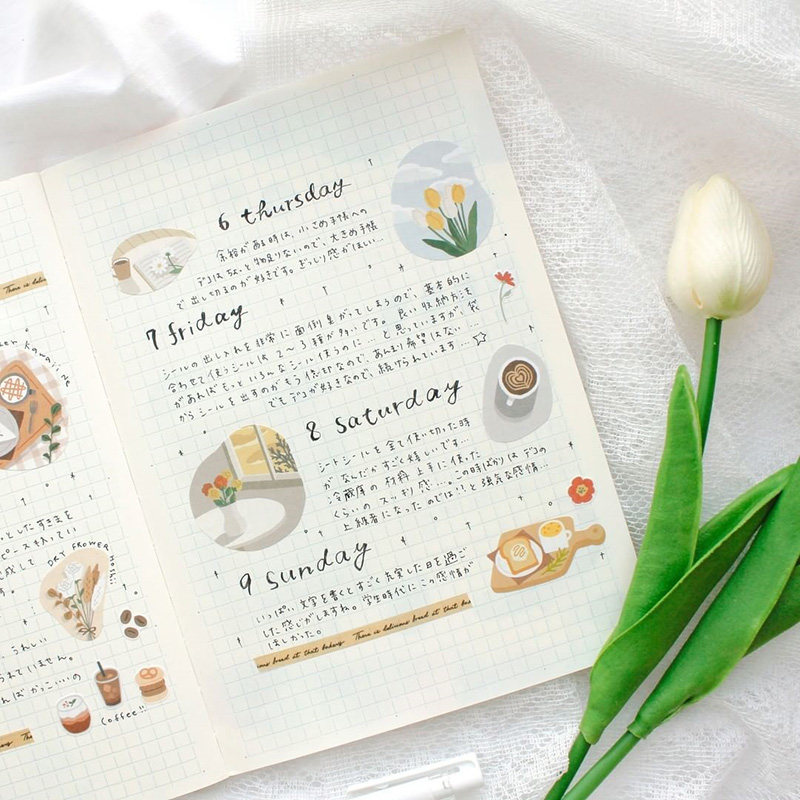 There is delici
DRY FLOWER
coffee!!
6 thursday
余裕がある時は、小さめ手帳への
デコはちょっと物足りないので、大きめ手帳
で出し切るのが好きです。ぎっしり感がほしい…
7 friday
シールの出し入れを非常に面倒臭がってしまうので、基本的に
合わせて使うシールは2〜3種が多いです。良い収納方法
があればもっといろんなシール使うのに…と思っていますが、袋
からシールを出すのがもう億劫なので、あんまり希望はない…
でもデコが好きなので、続けられています…☆
8 saturday
シートシールを全て使い切った時
が、なんだかすごく嬉しいです…
冷蔵庫の材料上手に使った
くらいのスッキリ感…。この時ばかりはデコの
上級者になったのでは!と強気な感情…
9 sunday
いっぱい文字を書くとすごく充実した日を過ご
した感じがしますね。学生時代にこの感情が
ほしかった。
bread at that bakery There is delicious bread at that bak